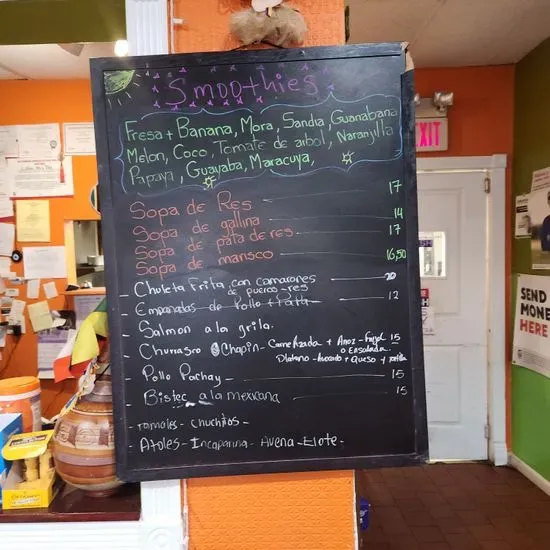 Smoothies
Fresa + Banana, Mora, Sandia, Guanabana
Melon, Coco, Tomate de arbol, Naranjilla
Papaya, Guayaba, Maracuya,
Sopa de Res 17
Sopa de gallina 14
Sopa de pata de res 17
Sopa de marisco 16,50
- Chuleta Frita con camarones 20
de puerco - res
- Empanadas de Pollo + Patt 12
Salmon a la grila.
- Churrasro Chapin - Carne Azada + Arroz - Frijol 15
o Ensalada.
Platano - Avocado + Queso y
- Pollo Pachay - 15
- Bistec a la mexicana 15
- Tamales - chuchitos -
- Atoles - Incaparina - Avena - Elote -
EXIT
SEND
MONE
HERE